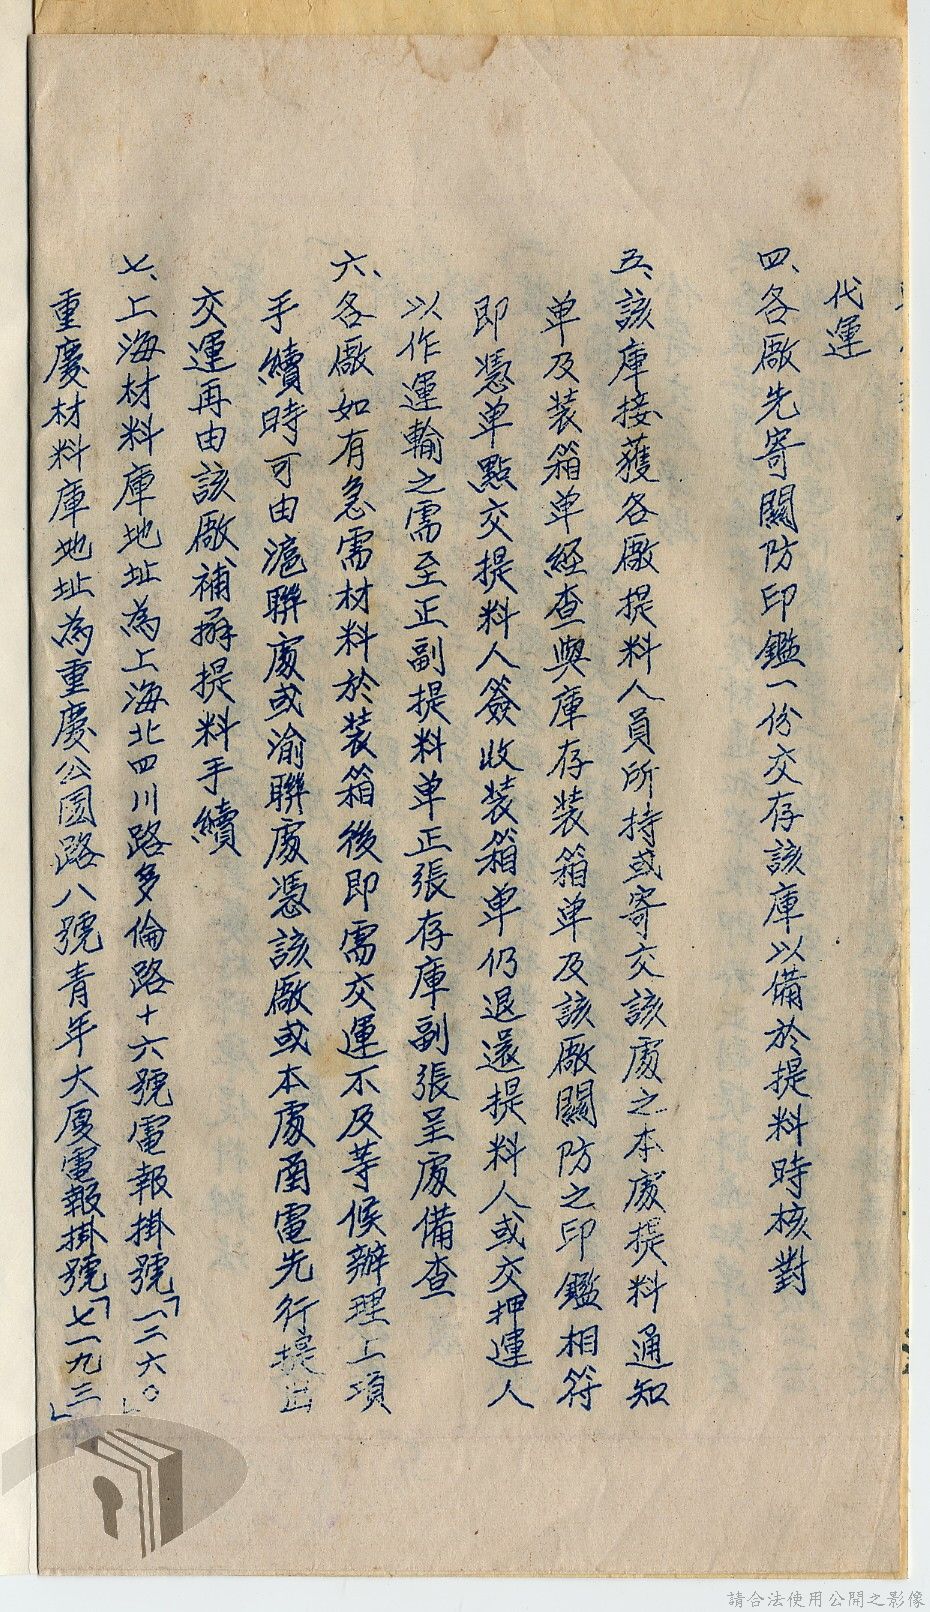 代運
四、各廠先寄關防印鑑一份交存該庫以備於提料時核對
五、該庫接獲各廠提料人員所持或寄交該處之本處提料通知
单及裝箱单經查與庫存裝箱单及該廠關防之印鑑相符
即憑单點交提料人簽收裝箱单仍退還提料人或交押運人
以作運輸之需至正副提料单正張存庫副張呈處備查
六、各廠如有急需材料於裝箱後即需交運不及等候辦理上項
手續時可由滬聯處或渝聯處憑該廠或本處函電先行提出
交運再由該廠補辦提料手續
七、上海材料庫地址為上海北四川路多倫路十六號電報掛號「一二六〇」
重慶材料庫地址為重慶公園路八號青年大厦電報掛號「七一九三」
請合法使用公開之影像